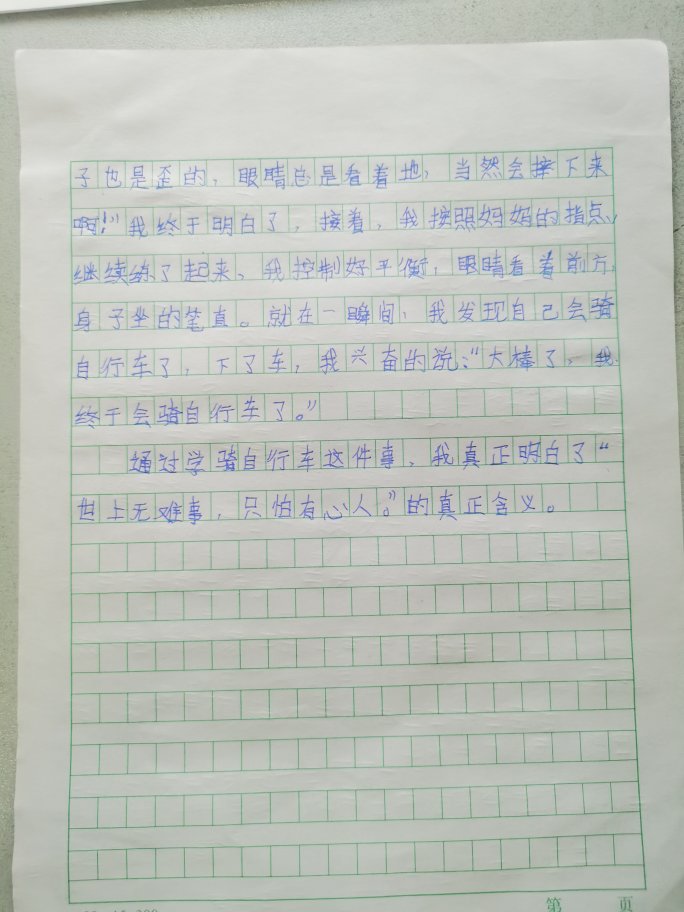 子也是歪的，眼睛总是看着地，当然会摔下来
啊！”我终于明白了，接着，我按照妈妈的指点，
继续练了起来、我控制好平衡，眼睛看着前方，
身子坐的笔直。就在一瞬间，我发现自己会骑
自行车了，下了车，我兴奋的说：“大棒了，我
终于会骑自行车了。”
通过学骑自行车这件事，我真正明白了“
世上无难事，只怕有心人。”的真正含义。
第 页